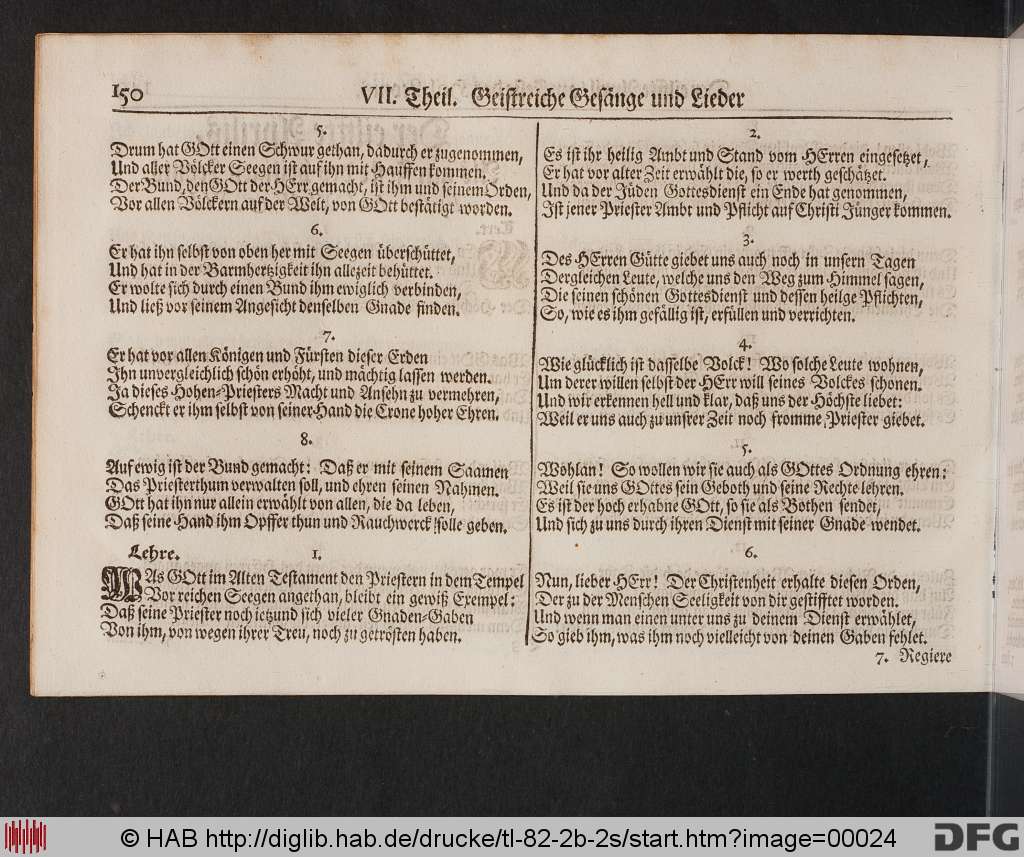 150
VII. Theil. Geistreiche Gesänge und Lieder
5.
Drum hat GOtt einen Schwur gethan, dadurch er zugenommen,
Und aller Völcker Seegen ist auf ihn mit Hauffen kommen.
Der Bund, den GOtt der HErr gemacht, ist ihm und seinem Orden,
Vor allen Völckern auf der Welt, von GOtt bestätigt worden.
6.
Er hat ihn selbst von oben her mit Seegen überschüttet,
Und hat in der Barmhertzigkeit ihn allezeit behüttet.
Er wolte sich durch einen Bund ihm ewiglich verbinden,
Und ließ vor seinem Angesicht denselben Gnade finden.
7.
Er hat vor allen Königen und Fürsten dieser Erden
Ihn unvergleichlich schön erhöht, und mächtig lassen werden.
Ja dieses Hohen-Priesters Macht und Ansehn zu vermehren,
Schenckt er ihm selbst von seiner Hand die Crone hoher Ehren.
8.
Auf ewig ist der Bund gemacht: Daß er mit seinem Saamen
Das Priesterthum verwalten soll, und ehren seinen Nahmen.
GOtt hat ihn nur allein erwählt von allen, die da leben,
Daß seine Hand ihm Opffer thun und Rauchwerck solle geben.
Lehre. 1.
WAs GOtt im Alten Testament den Priestern in dem Tempel
Vor reichen Seegen angethan, bleibt ein gewiß Exempel:
Daß seine Priester noch ietzund sich vieler Gnaden-Gaben
Von ihm, von wegen ihrer Treu, noch zu getrösten haben.
2.
Es ist ihr heilig Ambt und Stand vom HErren eingesetzet,
Er hat vor alter Zeit erwählt die, so er werth geschätzet.
Und da der Jüden Gottesdienst ein Ende hat genommen,
Ist jener Priester Ambt und Pflicht auf Christi Jünger kommen.
3.
Des HErren Gütte giebet uns auch noch in unsern Tagen
Dergleichen Leute, welche uns den Weg zum Himmel sagen,
Die seinen schönen Gottesdienst und dessen heilge Pflichten,
So, wie es ihm gefällig ist, erfüllen und verrichten.
4.
Wie glücklich ist dasselbe Volck! Wo solche Leute wohnen,
Um derer willen selbst der HErr will seines Volckes schonen.
Und wir erkennen hell und klar, daß uns der Höchste liebet:
Weil er uns auch zu unsrer Zeit noch fromme Priester giebet.
5.
Wohlan! So wollen wir sie auch als GOttes Ordnung ehren:
Weil sie uns GOttes sein Geboth und seine Rechte lehren.
Es ist der hoch erhabne GOtt, so sie als Bothen sendet,
Und sich zu uns durch ihren Dienst mit seiner Gnade wendet.
6.
Nun, lieber HErr! Der Christenheit erhalte diesen Orden,
Der zu der Menschen Seeligkeit von dir gestifftet worden.
Und wenn man einen unter uns zu deinem Dienst erwählet,
So gieb ihm, was ihm noch vielleicht von deinen Gaben fehlet.
7. Regiere
© HAB http://diglib.hab.de/drucke/tl-82-2b-2s/start.htm?image=00024
DFG